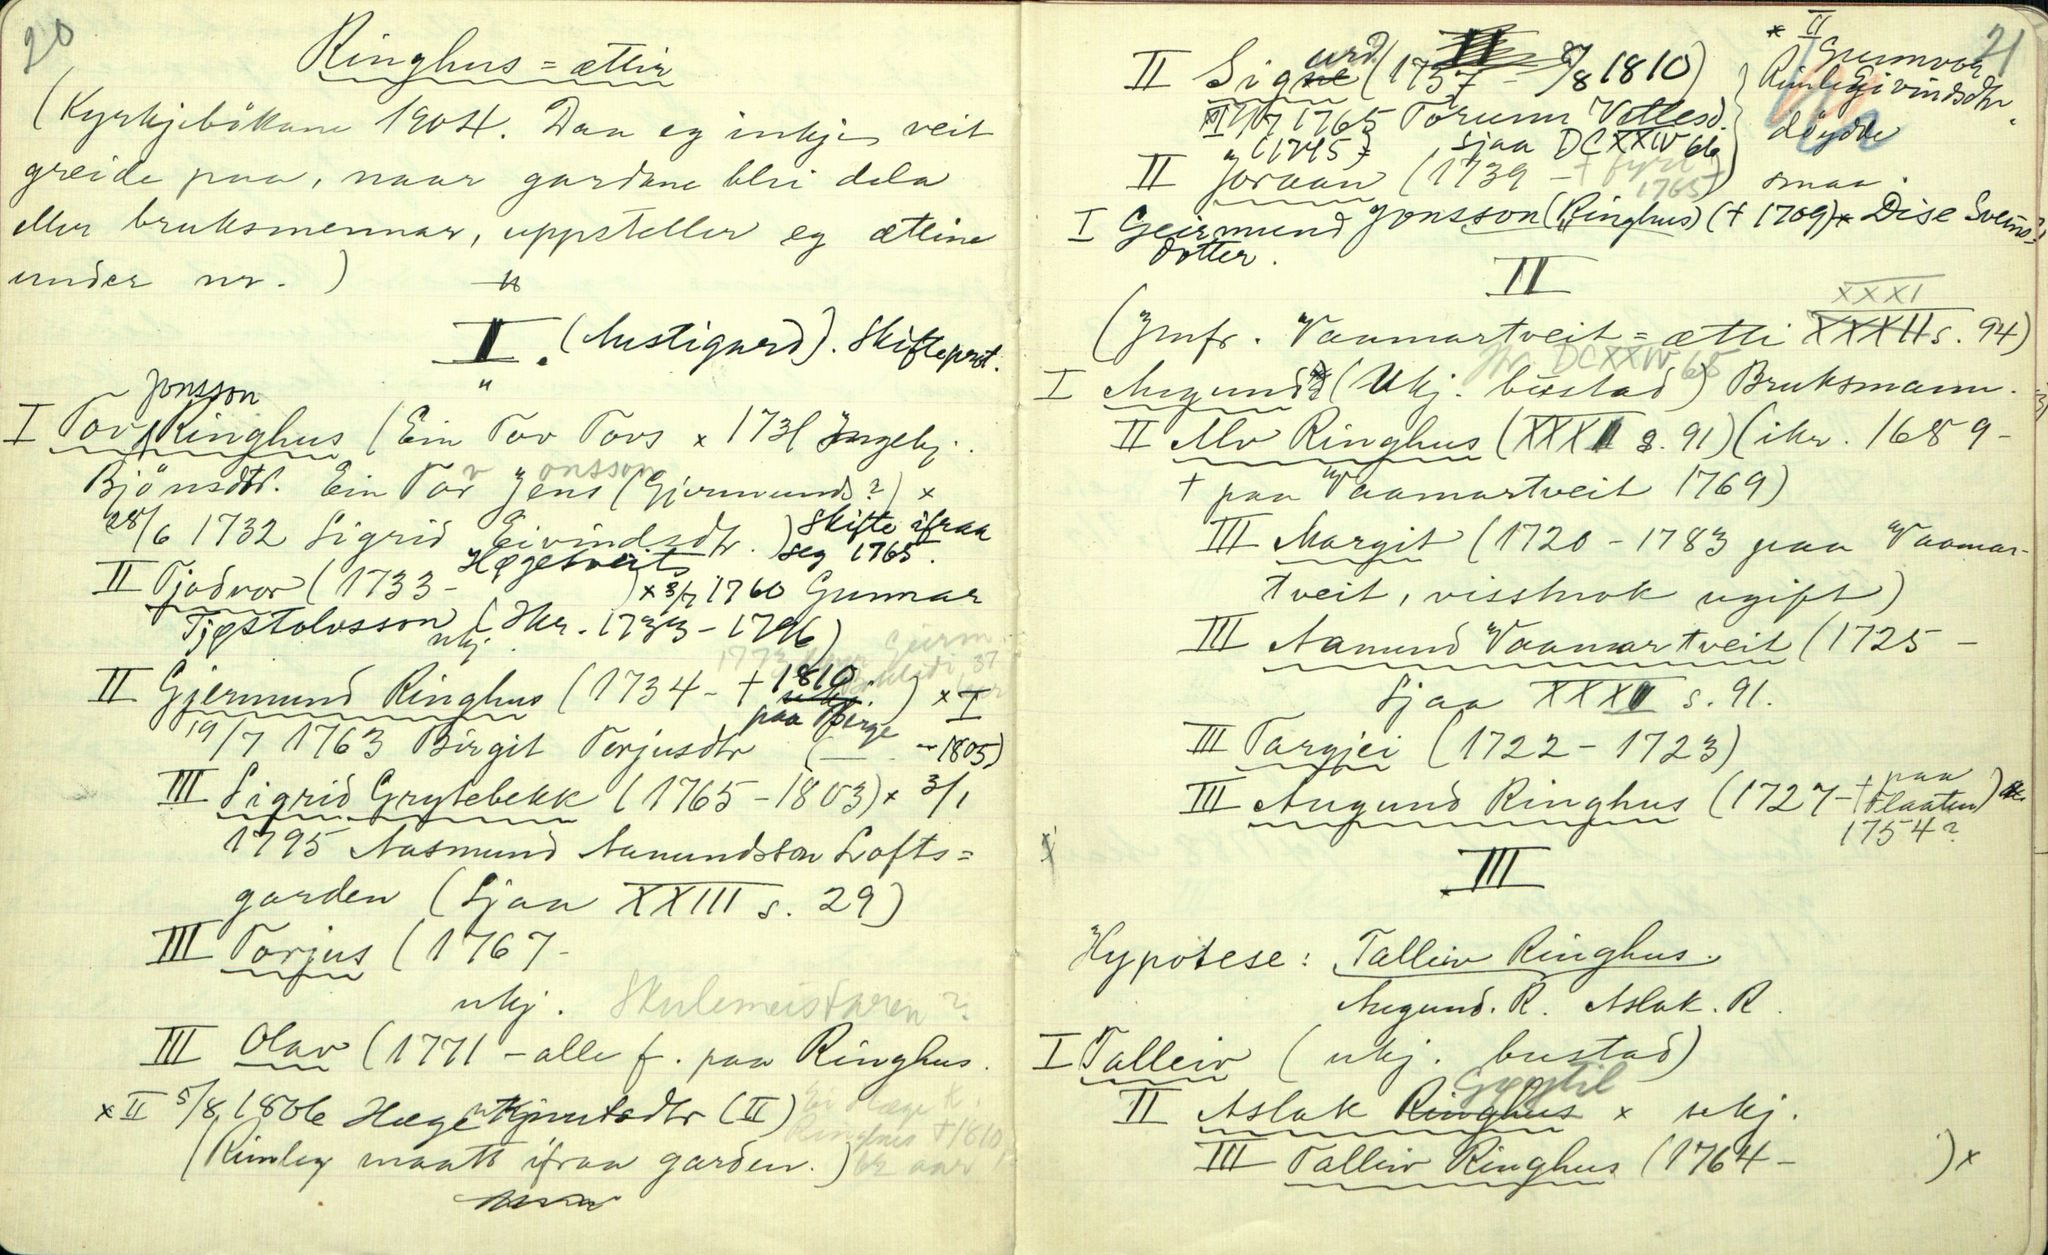 20
Ringhus=ættir
(Kyrkjebökane 1904. Daa eg inkje veit
greide paa, naar gardane bli dela
eller bruksmennar, uppsteller eg ættine
under nr. )
I. (Austigard). Skifteprot.
Jonsson
I Tov Ringhus (Ein Tov Tovs x 1731 Ingebj.
Björnsdtr. Ein Tov Jons (Gjermunds?) x
28/6 1732 Sigrid Eivindsdtr. ) Skifte ifraa
seg 1765.
Hegetveit
II Tjodvor (1733- ) x 3/7 1760 Gunnar
Tjostolvsson (Hkr. 1733-1796)
ukj.
II Gjermund Ringhus (1734- + 1810 ) x I
paa Berge
19/7 1763 Birgit Torjusdtr ( - 1805)
III Sigrid Grytebekk (1765-1803) x 3/1
1795 Aasmund Aamundson Lofts=
garden (Sjaa XXIII s. 29)
III Torjus (1767-
ukj. Skulemeistaren?
III Olav (1771 - alle f. paa Ringhus.
x II 5/8 1806 Hæge Kjnutsdtr (II)
(Rimleg maatt ifraa garden.)
21
II Sigurd (1757- 8/8 1810)
1765 Torunn Vetlesd.
(1745) sjaa DCXXIV 66
II Joraan (1739 - + fyre 1765)
x II Gunnvor
Rimleg Eivindsdtr.
döydde
smaa.
I Geirmund Jonsson (Ringhus) (+ 1709) x Dise Sveins=
dotter.
II
XXXI
(Jmfr. Vaamartveit=ætti XXXII s. 94)
DCXXIV 65
I Augund (Ukj. bustad) Bruksmann.
II Alv Ringhus (XXXI s. 91) (ikr. 1689-
+ paa Vaamartveit 1769)
III Margit (1720-1783 paa Vaamar-
tveit, visstnok ugift)
III Aamund Vaamartveit (1725 -
Sjaa XXXI s. 91.
III Targjei (1722-1723)
III Augund Ringhus (1727- + paa
Flaaten)
1754?
x
III
Hypotese: Talleiv Ringhus.
Augund. R. Aslak. R.
I Talleiv (ukj. bustad)
Gygstil
II Aslak Ringhus x ukj.
III Talleiv Ringhus (1764- )x